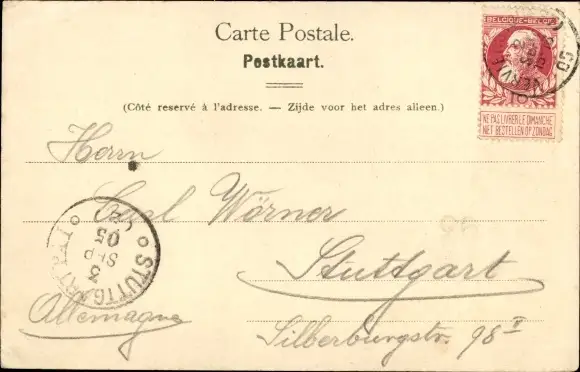 Carte Postale.
Postkaart.
(Côté reservé à l'adresse. — Zijde voor het adres alleen.)
BELGIQUE·BELGIË
10
NE PAS LIVRER LE DIMANCHE
NIET BESTELLEN OP ZONDAG
Herrn
Carl Wörner
Stuttgart
Allemagne
Silberburgstr. 98 II
STUTTGART
3
SEP
05